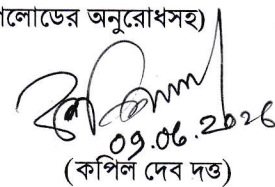 লোডের অনুরোধসহ)
09.06.2026
(কপিল দেব দত্ত)